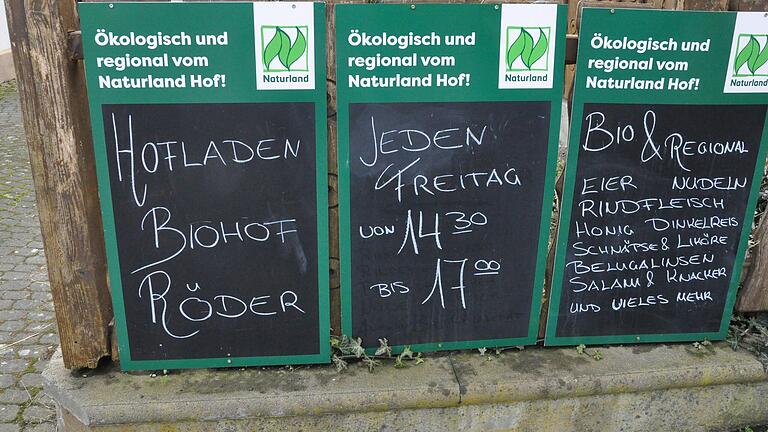 Ökologisch und
regional vom
Naturland Hof!
Naturland
HOFLADEN
BIOHOF
RÖDER
Ökologisch und
regional vom
Naturland Hof!
Naturland
JEDEN
FREITAG
VON 14 30
BIS 17 00
Ökologisch und
regional vom
Naturland Hof!
Naturland
BIO & REGIONAL
EIER NUDELN
RINDFLEISCH
HONIG DINKELREIS
SCHNÄTSE & LIKÖRE
BELUGALINSEN
SALAMI & KNACKER
UND VIELES MEHR